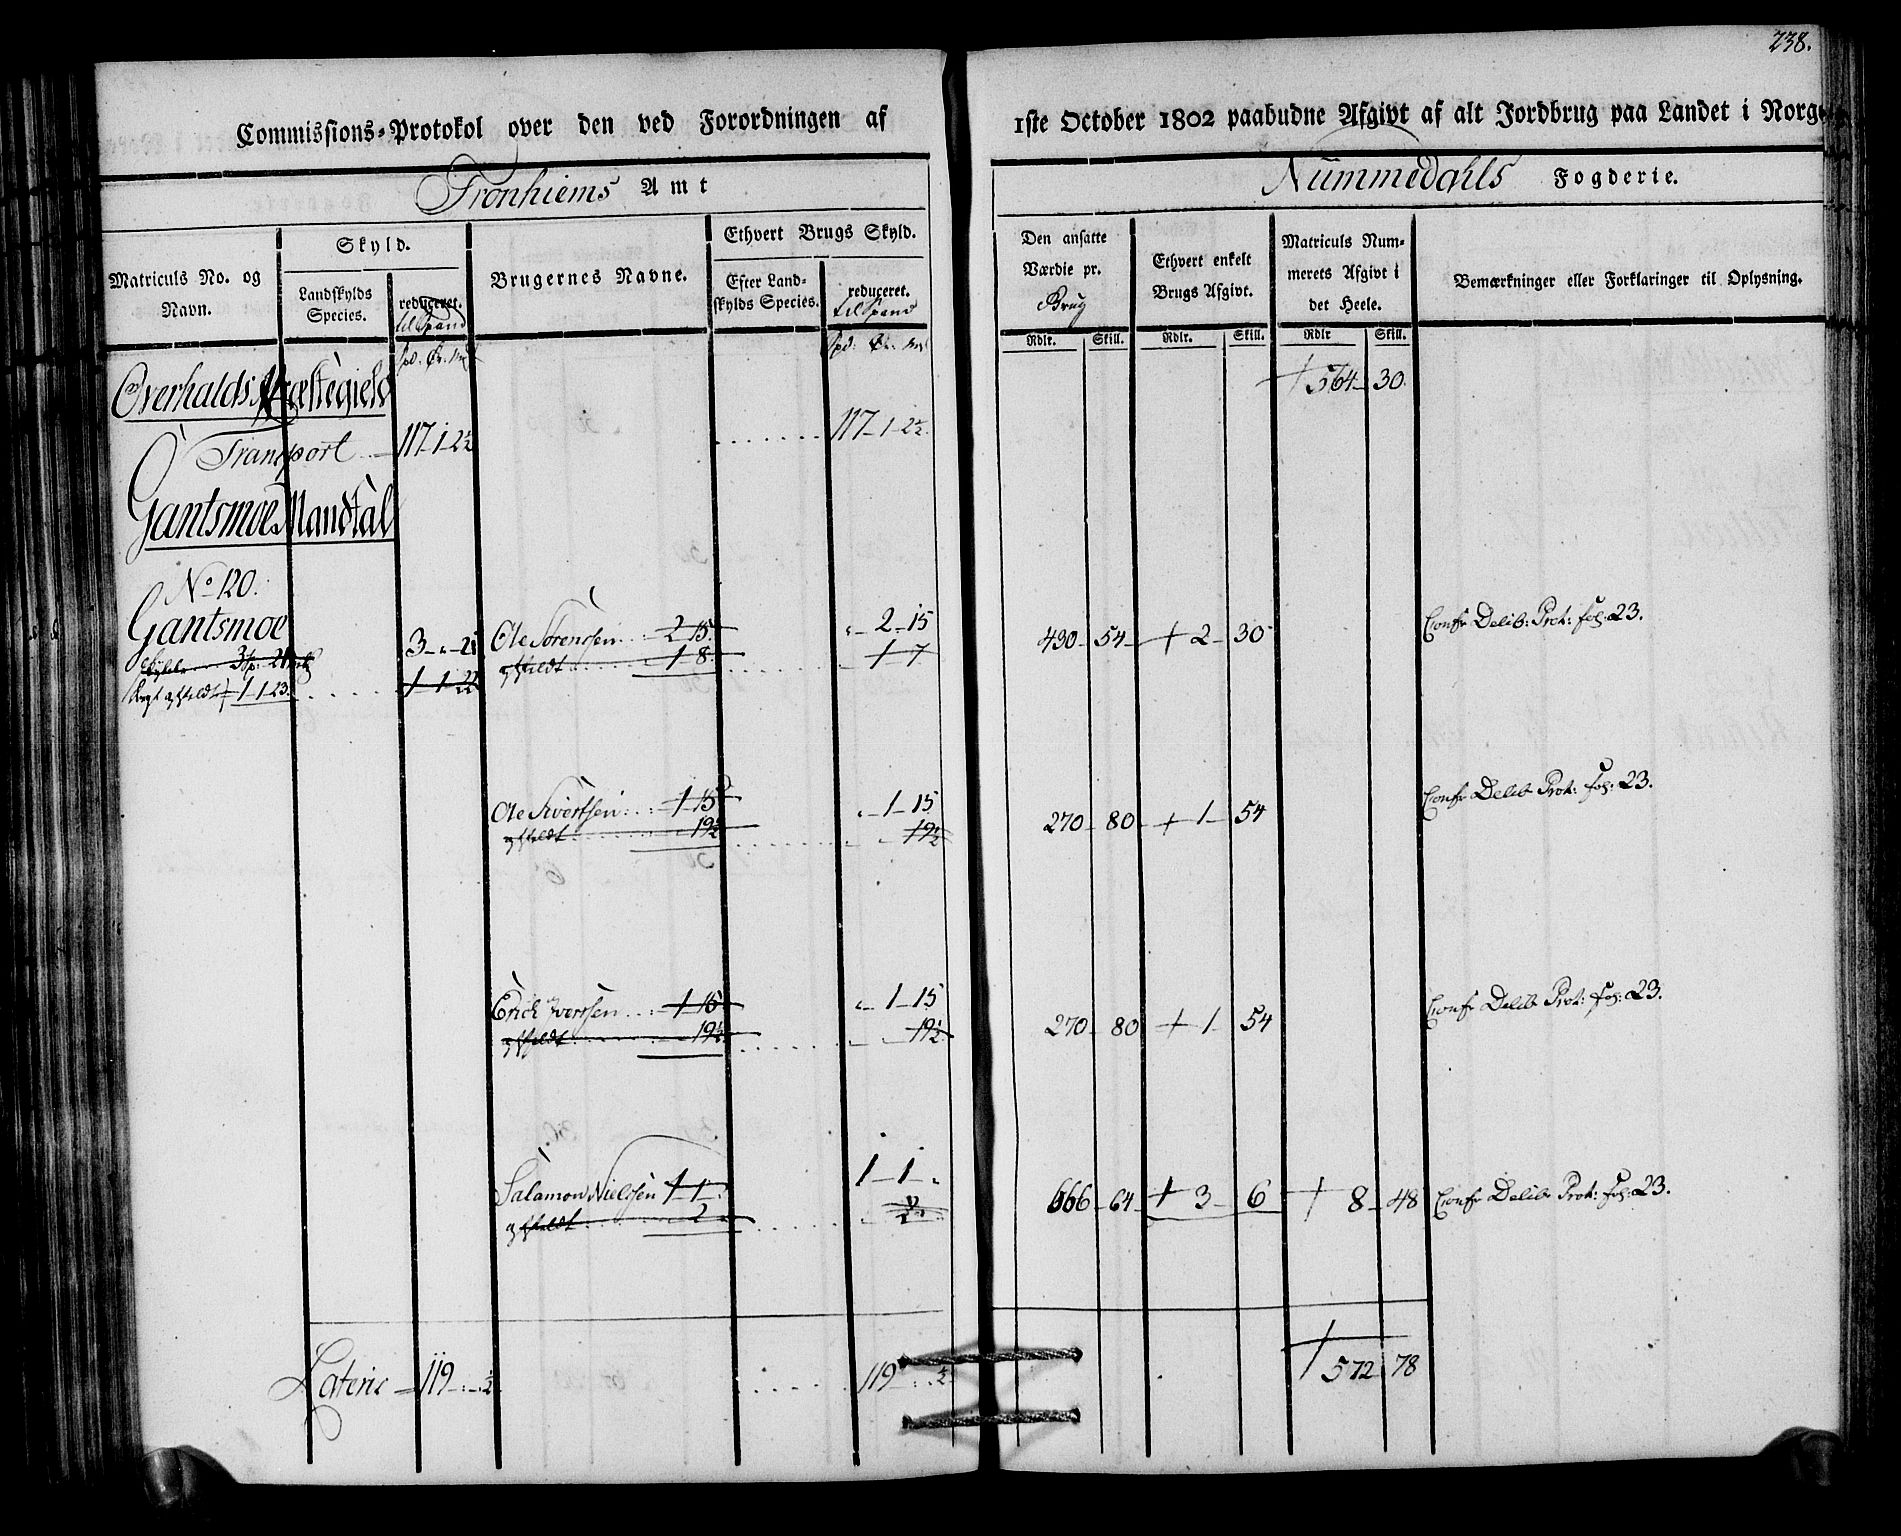 238.
Commissions=Protokol over den ved Forordningen af 1ste October 1802 paabudne Afgivt af alt Jordbrug paa Landet i Norge
Tronhiems Amt
Nummedahls Fogderie.
Matriculs No. og Navn.
Skyld.
Landskylds Species.
reduceret. til Spand
Brugernes Navne.
Ethvert Brugs Skyld.
Efter Landskylds Species.
reduceret. til Spand
Den ansatte Værdie pr. Brug
Ethvert enkelt Brugs Afgivt.
Matriculs Nummerets Afgivt i det Heele.
Bemærkninger eller Forklaringer til Oplysning.
Rdlr. Skill. Rdlr. Skill. Rdlr Skill.
Overhalds Præstegield
† 564 - 30.
Transport 117 - 1 - 2½ 117 - 1 - 2½.
Gantsmoe Mandtal
No 120.
Gantsmoe 3 - „ - 21 Ole Sørenssen 2 15. „ - 2 - 15 490 - 54 - + 2 - 30 Confr Delib: Prot: fol: 23.
3 sp: 21 ogskeldt 1 8. 1 7
ogskeldt 1 - 1 - 23. 1 1 22
Ole Sivertsen 1 15 „ - 1 - 15 270 - 80 - + 1 - 54 Confr Delib Prot: fol: 23.
ogskeldt 19½ 19½
Erich Iverssen 1 15 „ - 1 - 15 270 - 80 - + 1 - 54 Confr Delib Prot: fol: 23.
ogskeldt 19½ 19½
Salamon Nielssen 1 1 1 - 1 - „ 666 - 64 - + 3 - 6 † 8 - 48 Confr Delib Prot: fol: 23.
ogskeldt 2 2
Lateris 119 - „ - ½. 119 „ ½. † 572 78